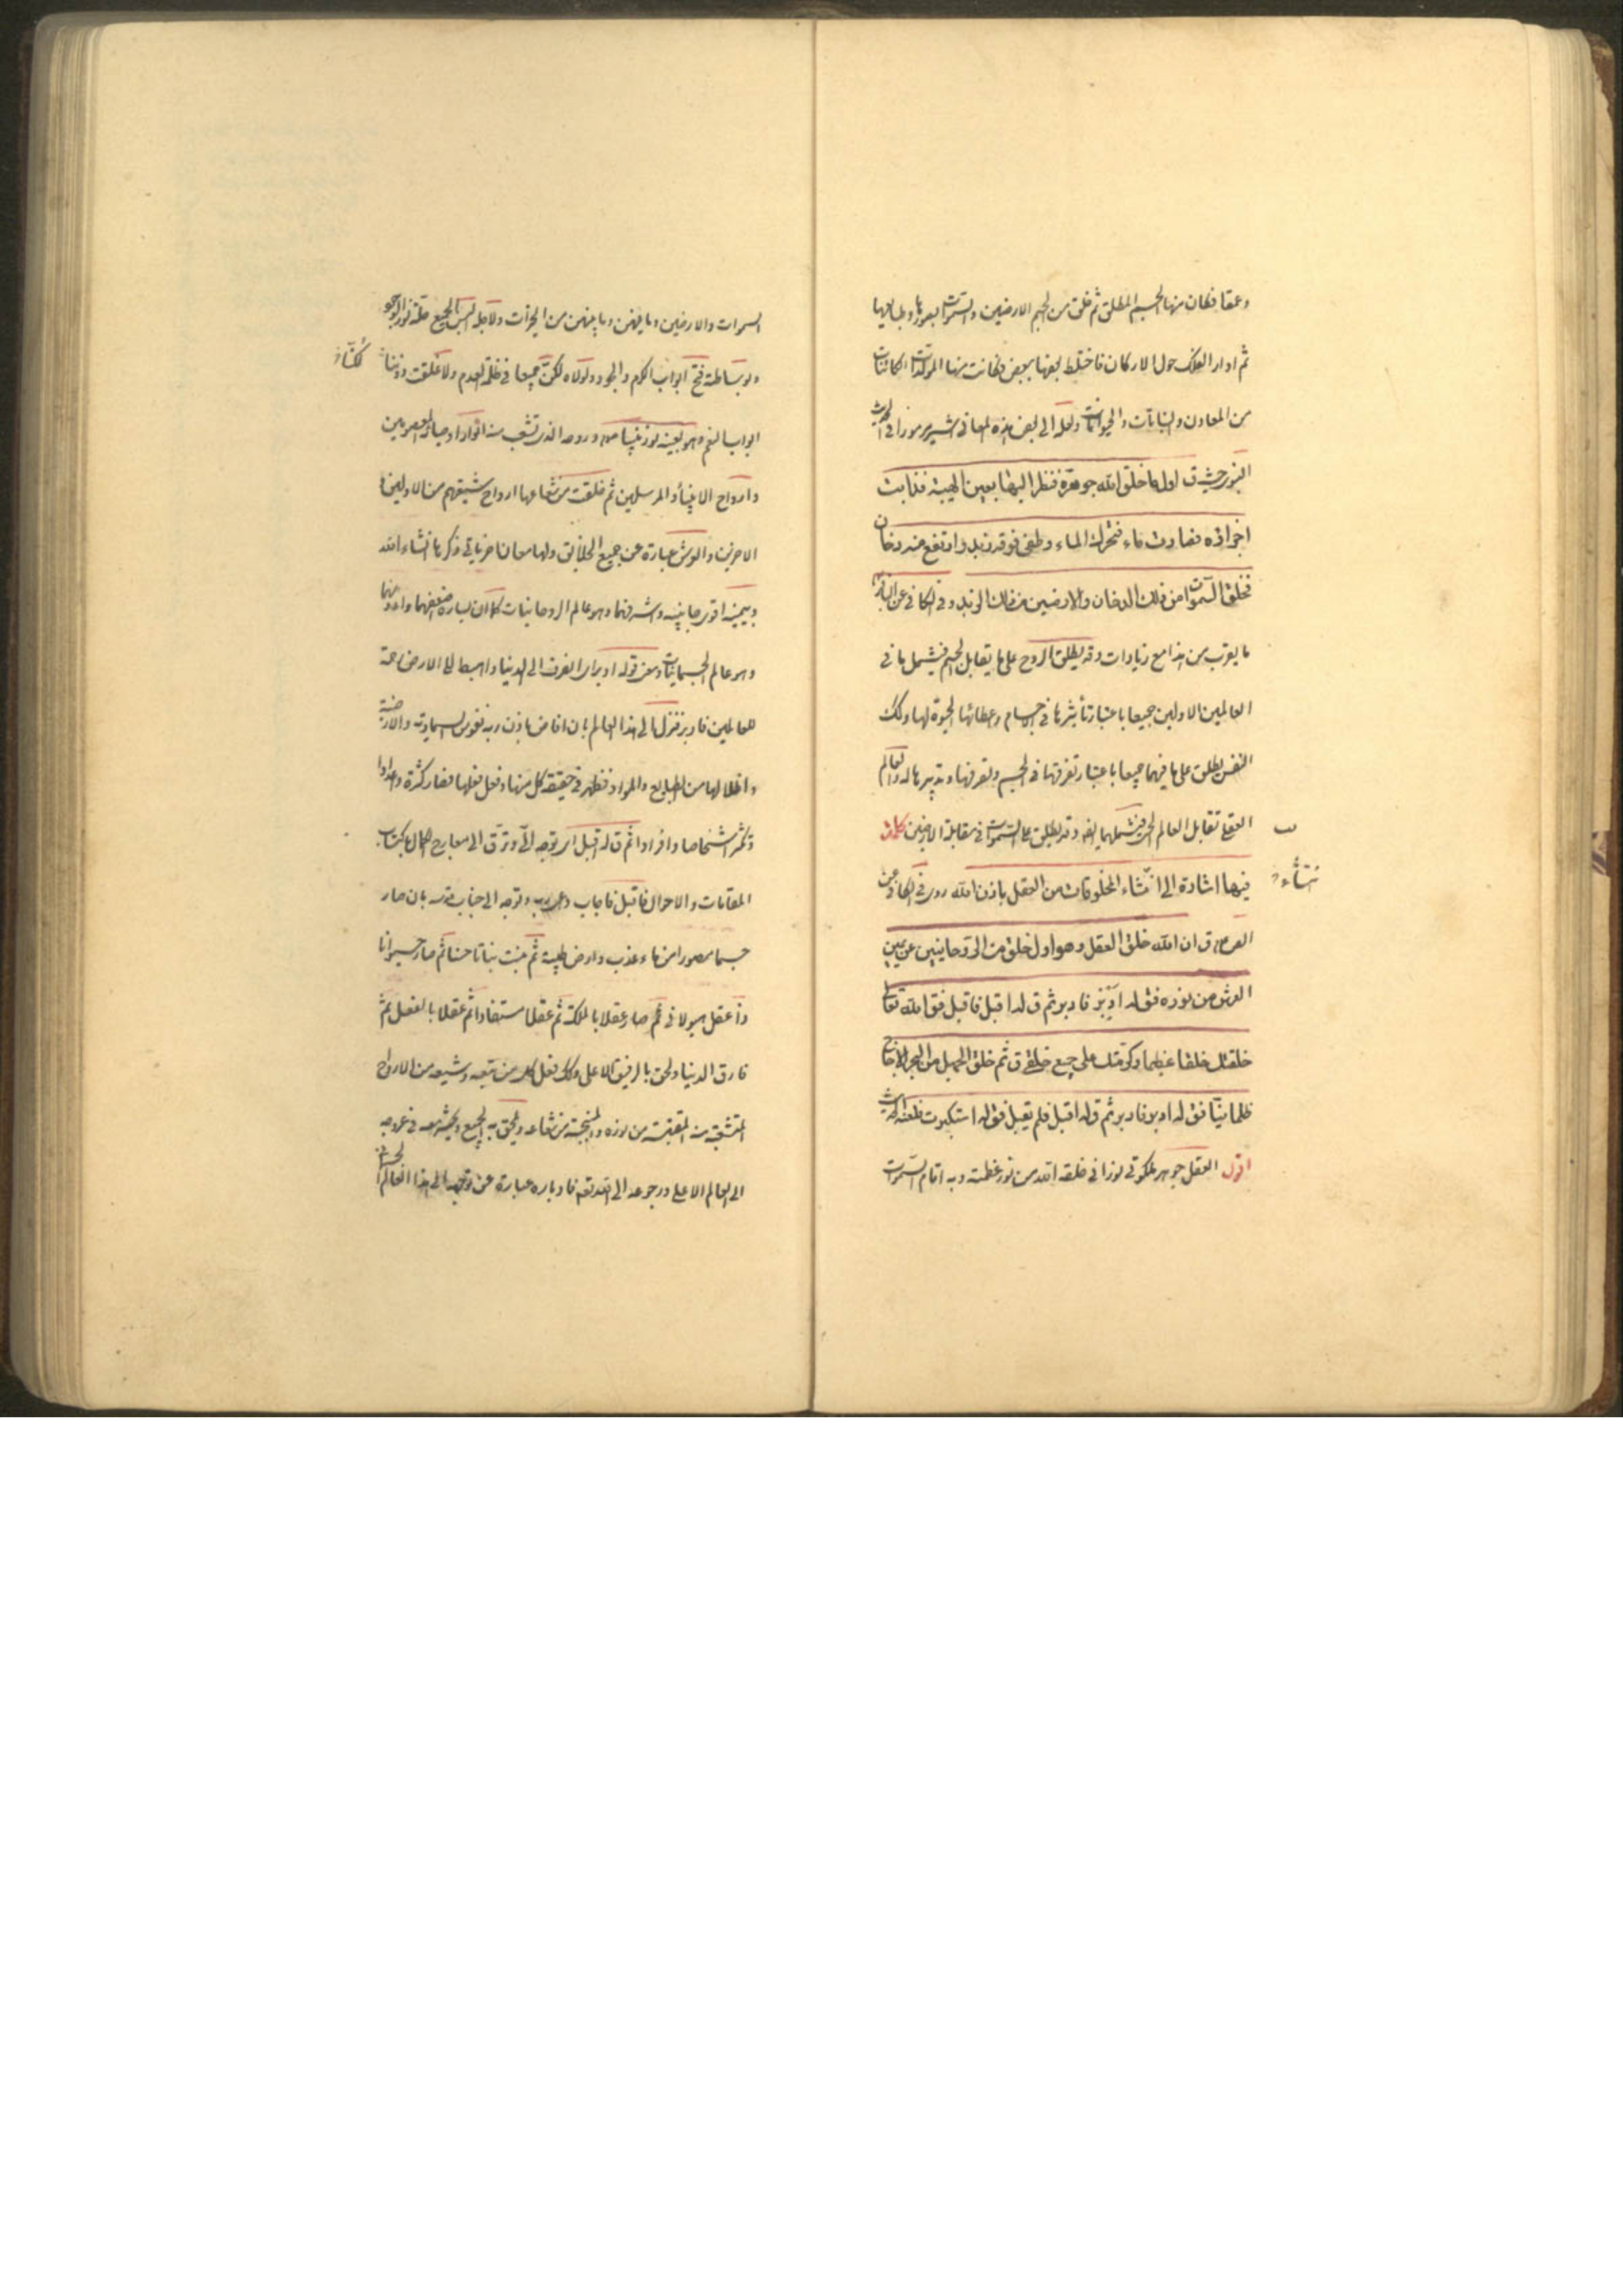 وعمقا فكان منها الجسم المطلق ثم خلق من الجسم الارضين والسموات بصورها وطبايعها
ثم ادار الفلك حول الاركان فاختلط بعضها ببعض فكانت منها المولدات الكاينات
من المعادن والنباتات والحيوانات ولعله الى بعض هذه المعانى اشير مرموزا فى الحديث
النبوى حيث ق اول ما خلق الله جوهرة فنظر اليها بعين الهيبة فذابت
اجزاؤه فصارت ماء فتحرك الماء وطفى فوقه زبد وارتفع منه دخان
فخلق السموات من ذلك الدخان والارضين من ذلك الزبد وفى الكافى عن الباقر
ما يقرب من هذا مع زيادات وقد يطلق الروح على ما يقابل الجسم فيشمل ما فى
العالمين الاولين جميعا باعتبار تأثيرها فى الاجسام واعطائها الحيوة لها وكذلك
النفس يطلق على ما فيهما جميعا باعتبار تصرفها فى الجسم وتصرفها وتدبيرها له والعالم
العقلى تقابل العالم الحسى فيشملهما ايضا وقد يطلق على السموات فى مقابلة الارضين كلمات
ب
فيها اشارة الى انشاء المخلوقات من العقل باذن الله روى فى الكافى عن
نشأء
الص ق ان الله خلق العقل وهو اول خلق من الروحانيين عن يمين
العرش من نوره فق له ادبر فادبر ثم ق له اقبل فاقبل فق الله تعالى
خلقتك خلقا عظيما وكرمتك على جميع خلقى ق ثم خلق الجهل من البحر الاجاج
ظلمانيا فق له ادبر فادبر ثم ق له اقبل فلم يقبل فق له استكبرت فلعنه الحديث
اقول العقل جوهر ملكوتى نورانى خلقه الله من نور عظمته وبه اقام السموات
السموات والارضين وما فيهن وما بينهن من الخيرات ولاجله البس الجميع حلة نور الوجود
وبوساطته فتح ابواب الكرم والجود ولولاه لكن جميعا فى ظلمة العدم ولاغلقت دوننا
لكنا
ابواب النعم وهو بعينه نور نبينا ص وروحه الذى تشعب منه انوار اوصيائه المعصومين
وارواح الانبياء والمرسلين ثم خلقت من شعاعها ارواح شيعتهم من الاولين و
الاخرين والعرش عبارة عن جميع الخلايق ولها معان اخر ياتى ذكرها انشاء الله
ويمينه اقوى جانبيه واشرفهما وهو عالم الروحانيات كما ان يساره اضعفهما وادونهما
وهو عالم الجسمانيات ومعنى قوله ادبر اى انصرف الى الدنيا واهبط الى الارض رحمة
للعالمين فادبر فنزل الى هذا العالم بان افاض باذن ربه نفوس السماوية والارضية
واظلالها من الطبايع والمواد فظهر فى حقيقة كل منها وفعل فعلها فصار كثرة واعدادا
وتكثر اشخاصا وافرادا ثم ق له اقبل اى توجه الى وترق الى معارج الكمال باكتساب
المقامات والاحوال فاقبل فاجاب داعى ربه وتوجه الى جناب قدسه بان صار
جسما مصورا من ماء عذب وارض طيبة ثم نبت نباتا حسنا ثم صار حيوانا
ذا عقل هيولانى ثم صار عقلا بالملكة ثم عقلا مستفادا ثم عقلا بالفعل ثم
فارق الدنيا ولحق بالرفيق الاعلى وكذلك فعل كل من تبعه وشيعه من الارواح
المتشعبة منه المقتبسة من نوره والمنبجسة من شعاعه ويلحق به الجميع ويحشر معه فى عروجه
الى العالم الاعلى ورجوعه الى الله تعالى فادباره عبارة عن توجهه الى هذا العالم الجسمانى